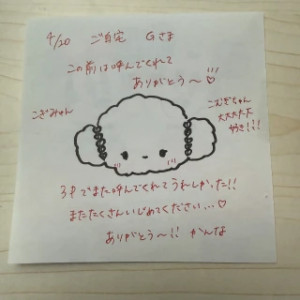 4/20 ご自宅 Gさま
この前は呼んでくれて
ありがとう〜!!!♡
こぎみゅん
こむぎちゃん
大大大大大
好き!!!
またまた呼んでくれてうれしかった!!
またたくさんいじめてください…♡
ありがとう〜!! かんな